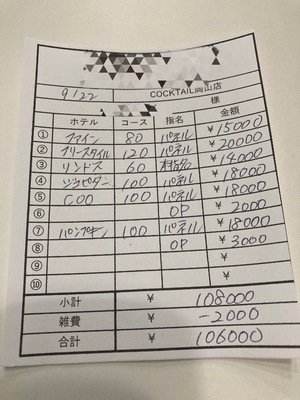 9/22 COCKTAIL岡山店
様
ホテル コース 指名 金額
① ファイン 80 パネル ¥15000
② フリースタイル 120 パネル ¥20000
③ リンドス 60 本指名 ¥14000
④ 100 パネル ¥18000
⑤ COO 100 パネル ¥18000
⑥ OP ¥2000
⑦ パンプキン 100 パネル ¥18000
⑧ OP ¥3000
⑨
⑩
小計 ¥ 108000
雑費 ¥ -2000
合計 ¥ 106000